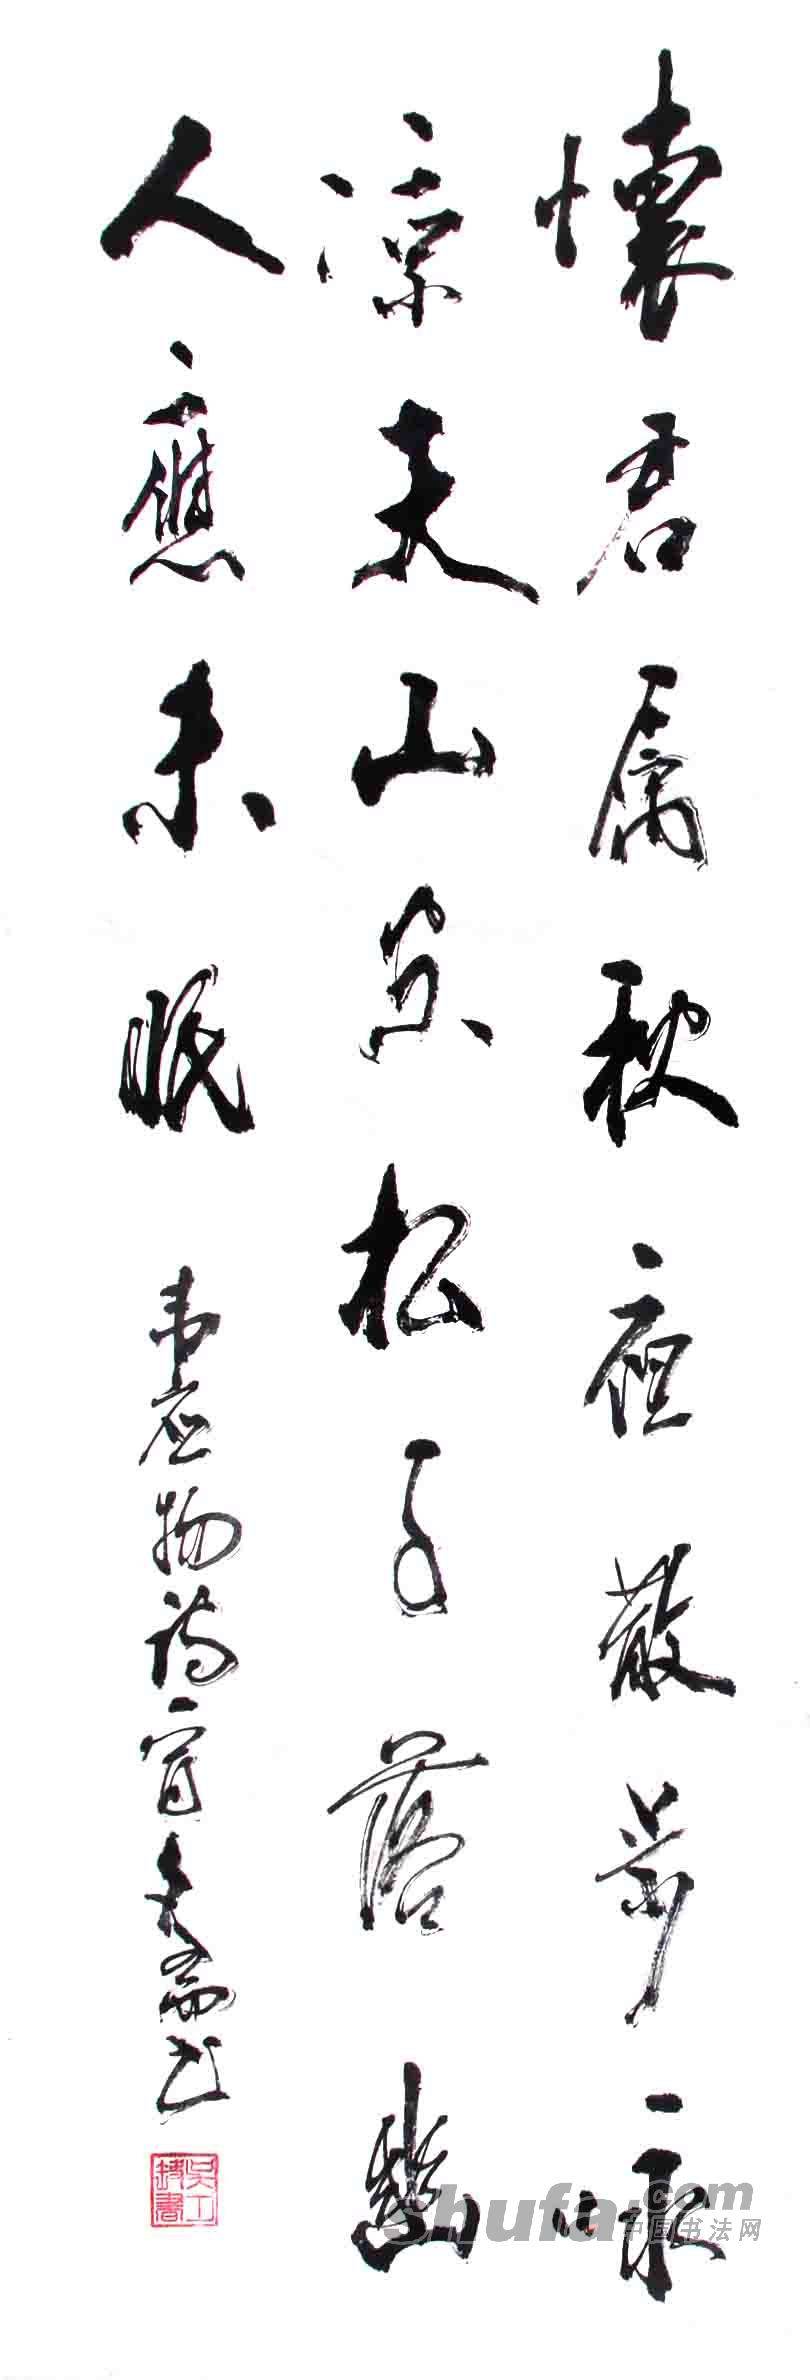 懷君属秋夜散步咏
凉天山空松子落幽
人應未眠
韦应物诗 书
shufa.com
中国书法网